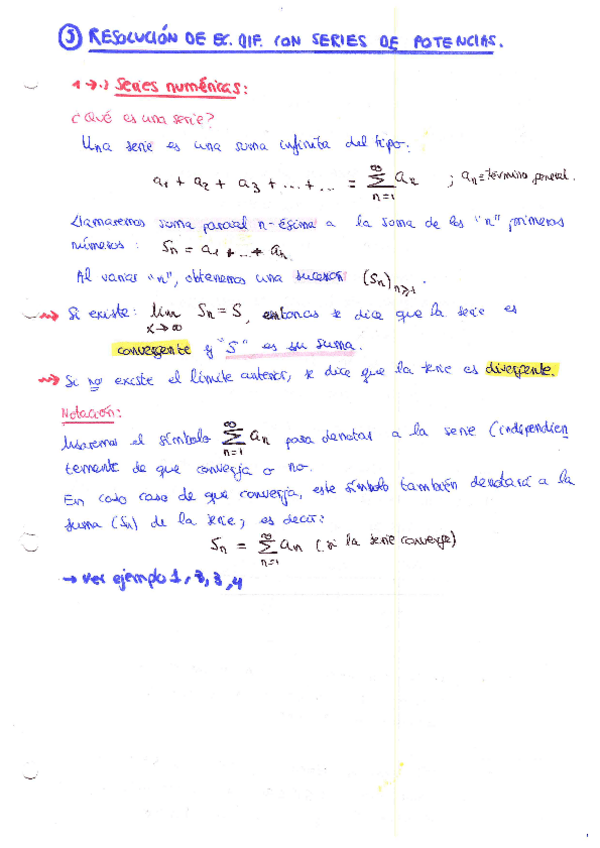 ⑤ RESOLUCIÓN DE EC. DIF. CON SERIES DE POTENCIAS.
1→.) Series numéricas:
¿Qué es una serie?
Una serie es una suma infinita del tipo:
a₁ + a₂ + a₃ + ... + ... = ∑_{n=1}^{∞} aₙ ; aₙ = término general.
Llamaremos suma parcial n-ésima a la suma de los "n" primeros
números : Sₙ = a₁ + ... + aₙ.
Al variar "n", obtenemos una sucesión (Sₙ)_{n≥1}.
Si existe: lim_{x→∞} Sₙ = S, entonces se dice que la serie es
convergente y "S" es su suma.
Si no existe el límite anterior, se dice que la serie es divergente.
Notación:
Usaremos el símbolo ∑_{n=1}^{∞} aₙ para denotar a la serie (independien
temente de que converja o no.
En caso caso de que converja, este símbolo también denotará a la
suma (Sₙ) de la serie; es decir:
Sₙ = ∑_{n=1}^{∞} aₙ (si la serie converge)
→ Ver ejemplo 1, 2, 3, 4